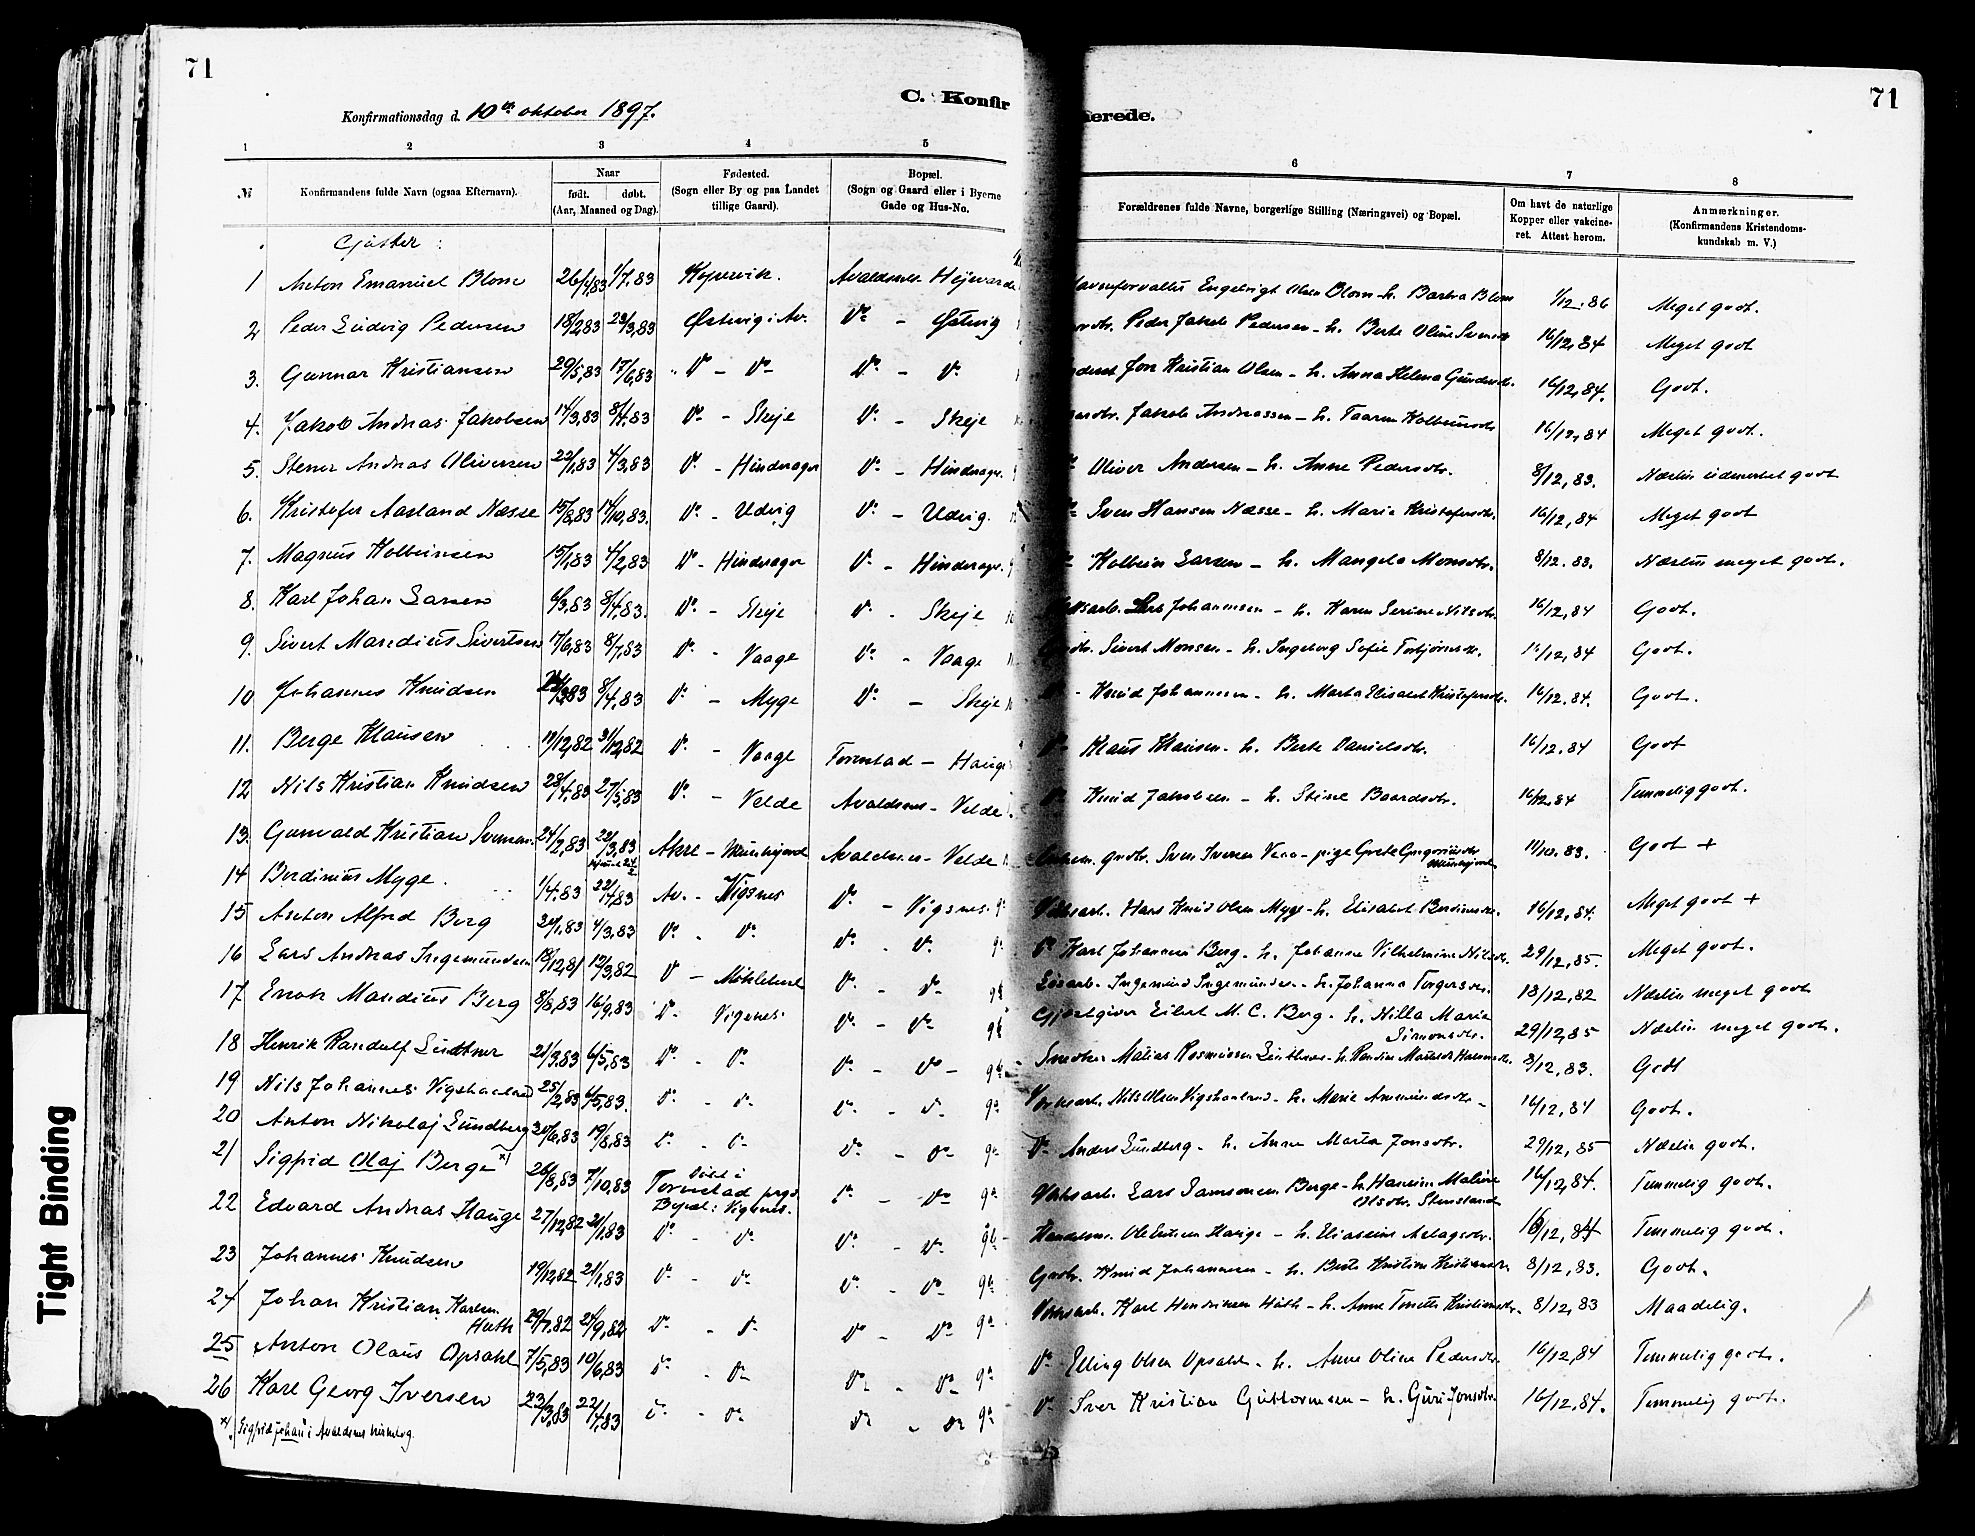 71
71
Konfirmationsdag d. 10de oktober 1897.
C. Konfir
merede.
1 2 3 4 5 6 7 8
№
Konfirmandens fulde Navn (ogsaa Efternavn).
Naar
født. døbt.
(Aar, Maaned og Dag).
Fødested.
(Sogn eller By og paa Landet
tillige Gaard).
Bopæl.
(Sogn og Gaard eller i Byerne
Gade og Hus-No.
Forældrenes fulde Navne, borgerlige Stilling (Næringsvei) og Bopæl.
Om havt de naturlige
Kopper eller vakcine-
ret. Attest herom.
Anmærkninger.
(Konfirmandens Kristendoms-
kundskab m. V.)
Gutter:
1 Anton Emanuel Blom 26/4,83 1/7,83 Kopervik. Avaldsnes Engebrigt Olsen Blom - h. Barbra Blom 1/12,86 Meget godt.
2 Peder Ludvig Pedersen 18/2,83 23/3,83 Østevig i Av. Do - Østevig Peder Jakob Pedersen - h. Berte Oline 16/12,84 Meget godt
3. Gunnar Kristiansen 29/5,83 17/6,83 Do - Do Do - Do Jon Kristian Olsen - h. Anna Helena 16/12,84. Godt.
4. Jakob Andreas Jakobsen 14/3,83 8/4,83 Do - Skeje Do - Skeje Jakob Andreassen - h. Taaren Kolbeinsdtr. 16/12,84 Meget godt.
5. Stener Andreas Oliversen 23/1,83 4/3,83 Do - Hinderager Do - Hinderager. Oliver Andersen - h. Anne Pedersdtr. 8/12,83. Næsten udmerket godt
6. Kristofer Aarland Næsse 15/8,83 14/10,83. Do - Udvig Do - Udvig. Sven Hansen Næsse - h. Marie Kristofersdtr. 16/12,84 Meget godt
7. Magnus Kolbeinsen 15/1,83 4/2,83 Do - Hinderager Do - Hinderager. Kolbein Larsen - h. Mangela Monsdtr. 8/12.83. Næsten meget godt.
8. Karl Johan Larsen 6/3,83 8/4,83. Do - Skeje Do - Skeje Lars Johannesen - h. Karen Serine Nilsdtr. 16/12,84 Godt.
9. Sivert Mandius Sivertsen 17/6,83 8/7,83 Do - Vaage Do - Vaage Sivert Monsen - h. Ingeborg Sofie Torbjørnsdtr. 16/12,84 Godt.
10 Johannes Knudsen 8/4,83 Do - Myge Do - Skeje Knud Johannesen - h. Marta Elisabet Kristofersdtr. 16/12.84. Godt.
11. Berge Klausen 19/12,82 31/12,82 Do - Vaage Torvestad - Hauge Do Klaus Klausen - h. Berte Danielsdtr. 16/12.84 Godt
12 Nils Kristian Knudsen 28/4,83 27/5,83 Do - Velde Avaldsnes - Velde Do Knud Jakobsen - h. Stine Baardsdtr. 16/12,84 Temmelig godt.
13. Gunvald Kristian Svensen. 24/2,83 22/3,83 Akre - Munkejorde Avaldsnes - Velde Sven Iversen - pige Grete Gregoriusdtr. Munkejorde 11/10.83. Godt +
14 Berdinius Myge. 1/4.83 22/4,83 Av. - Vigsnes Do - Vigsnes. Hans Knud Olsen Myge - h. Elisabet Berdinusdtr. 16/12,84. Meget godt +
15 Anton Alfred Berg 30/1,83 4/3,83 Do - Do Do - Do Do Karl Johannesen Berg - h. Johanne Vilhelmine 29/12,85. Meget godt.
16 Lars Andreas Ingemundsen 18/12,81 12/3,82 Do - Do - Do Ingemund Ingemundsen - h. Johanna Torgersdtr. 18/12,82 Næsten meget godt
17 Enok Mandius Berg 8/8,83 16/9,83 Do - Vigsnes Do - Do Gjestgiver Eilert M. C. Berg - h. Nilla Marie Simonsdtr. 29/12,85 Næsten meget godt.
18 Henrik Randulf Lindtner 21/3.83 6/5,83 Do - Do Do - Do - Matias Rasmussen 8/12,83. Godt
19 Nils Johannes Vigshaaland 25/2,83 6/5,83. Do - Do Do - Do Nils Olsen Vigshaaland - h. Marie Ammundsdtr. 16/12,84 Godt.
20 Anton Nikolaj Lundberg 30/6,83 19/8,83 Do - Do Do - Do Do Anders Lundberg - h. Anne Marta Jonsdtr. 29/12,85 Næsten godt.
21 Sigfrid Olaj Berge x) 26/8,83 7/10,83 Døbt i Torvestad prgd. Bopæl: Vigsnes. Do - Do Lars Samsonsen Berge - h. Hansine Maline Olsdtr. Stensland 16/12,84. Temmelig godt.
22 Edvard Andreas Hauge 27/12,82 21/1.83 Do - Do Do - Do Ole Hauge - h. Aslagsdtr. 16/12,84 Temmelig godt.
23 Johannes Knudsen 19/12,82 21/1,83 Do - Do Do - Do Knud Johannesen - h. Berte Kristine Kristiansdtr. 8/12,83. Godt.
24 Johan Kristian Karlsen Huth 29/7,82 24/9,82 Do - Do Do - Do Karl Hendriksen Huth - h. Anne Tonette Kristiansdtr. 8/12,83 Maadelig.
25 Anton Olaus Opsahl 7/5,83 10/6,83 Do - Do Do - Do Do Elling Olsen Opsahl - h. Anne Oline Pedersdtr. 16/12,84 Temmelig godt.
26 Karl Georg Iversen 23/3,83 22/4,83 Do - Do Do - Do Do Iver Kristian Guttormsen - h. Guri Jonsdtr. 16/12,84. Temmelig godt.
x) Sigfrid Johan i Avaldsnes kirkebog.
Tight Binding